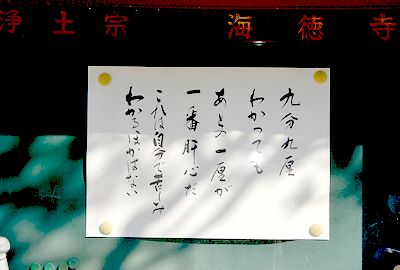 浄土宗 海徳寺
九分九厘
わかっても
あとの一厘が
一番肝心だ
これは自分で苦しみ
わかるほかはない